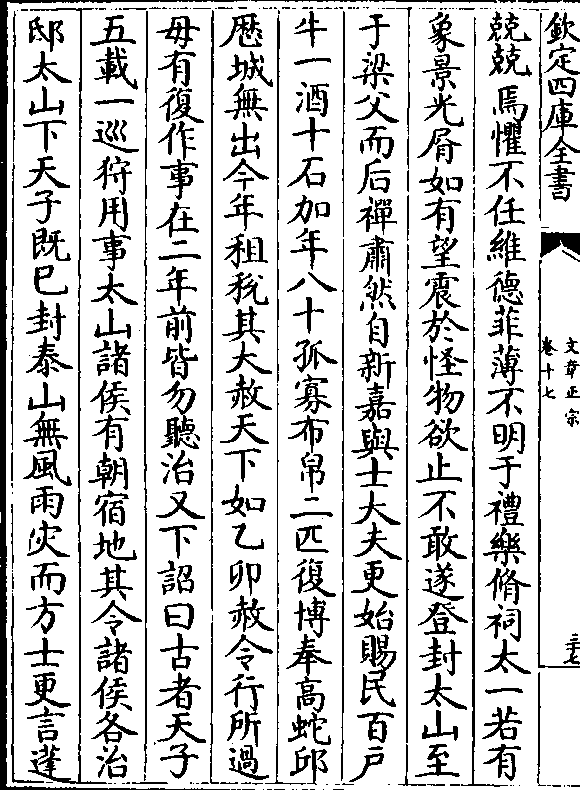 欽定四庫全書
文章正宗
卷十七
三十七
兢兢焉懼不任維德菲薄不明于禮樂脩祠太一若有
象景光屑如有望震於怪物欲止不敢遂登封太山至
于梁父而后禪肅然自新嘉與士大夫更始賜民百户
牛一酒十石加年八十孤寡布帛二匹復博奉高蛇邱
歴城無出今年租税其大赦天下如乙卯赦令行所過
毋有復作事在二年前皆勿聽治又下詔曰古者天子
五載一巡狩用事太山諸侯有朝宿地其令諸侯各治
邸太山下天子既已封泰山無風雨灾而方士更言蓬